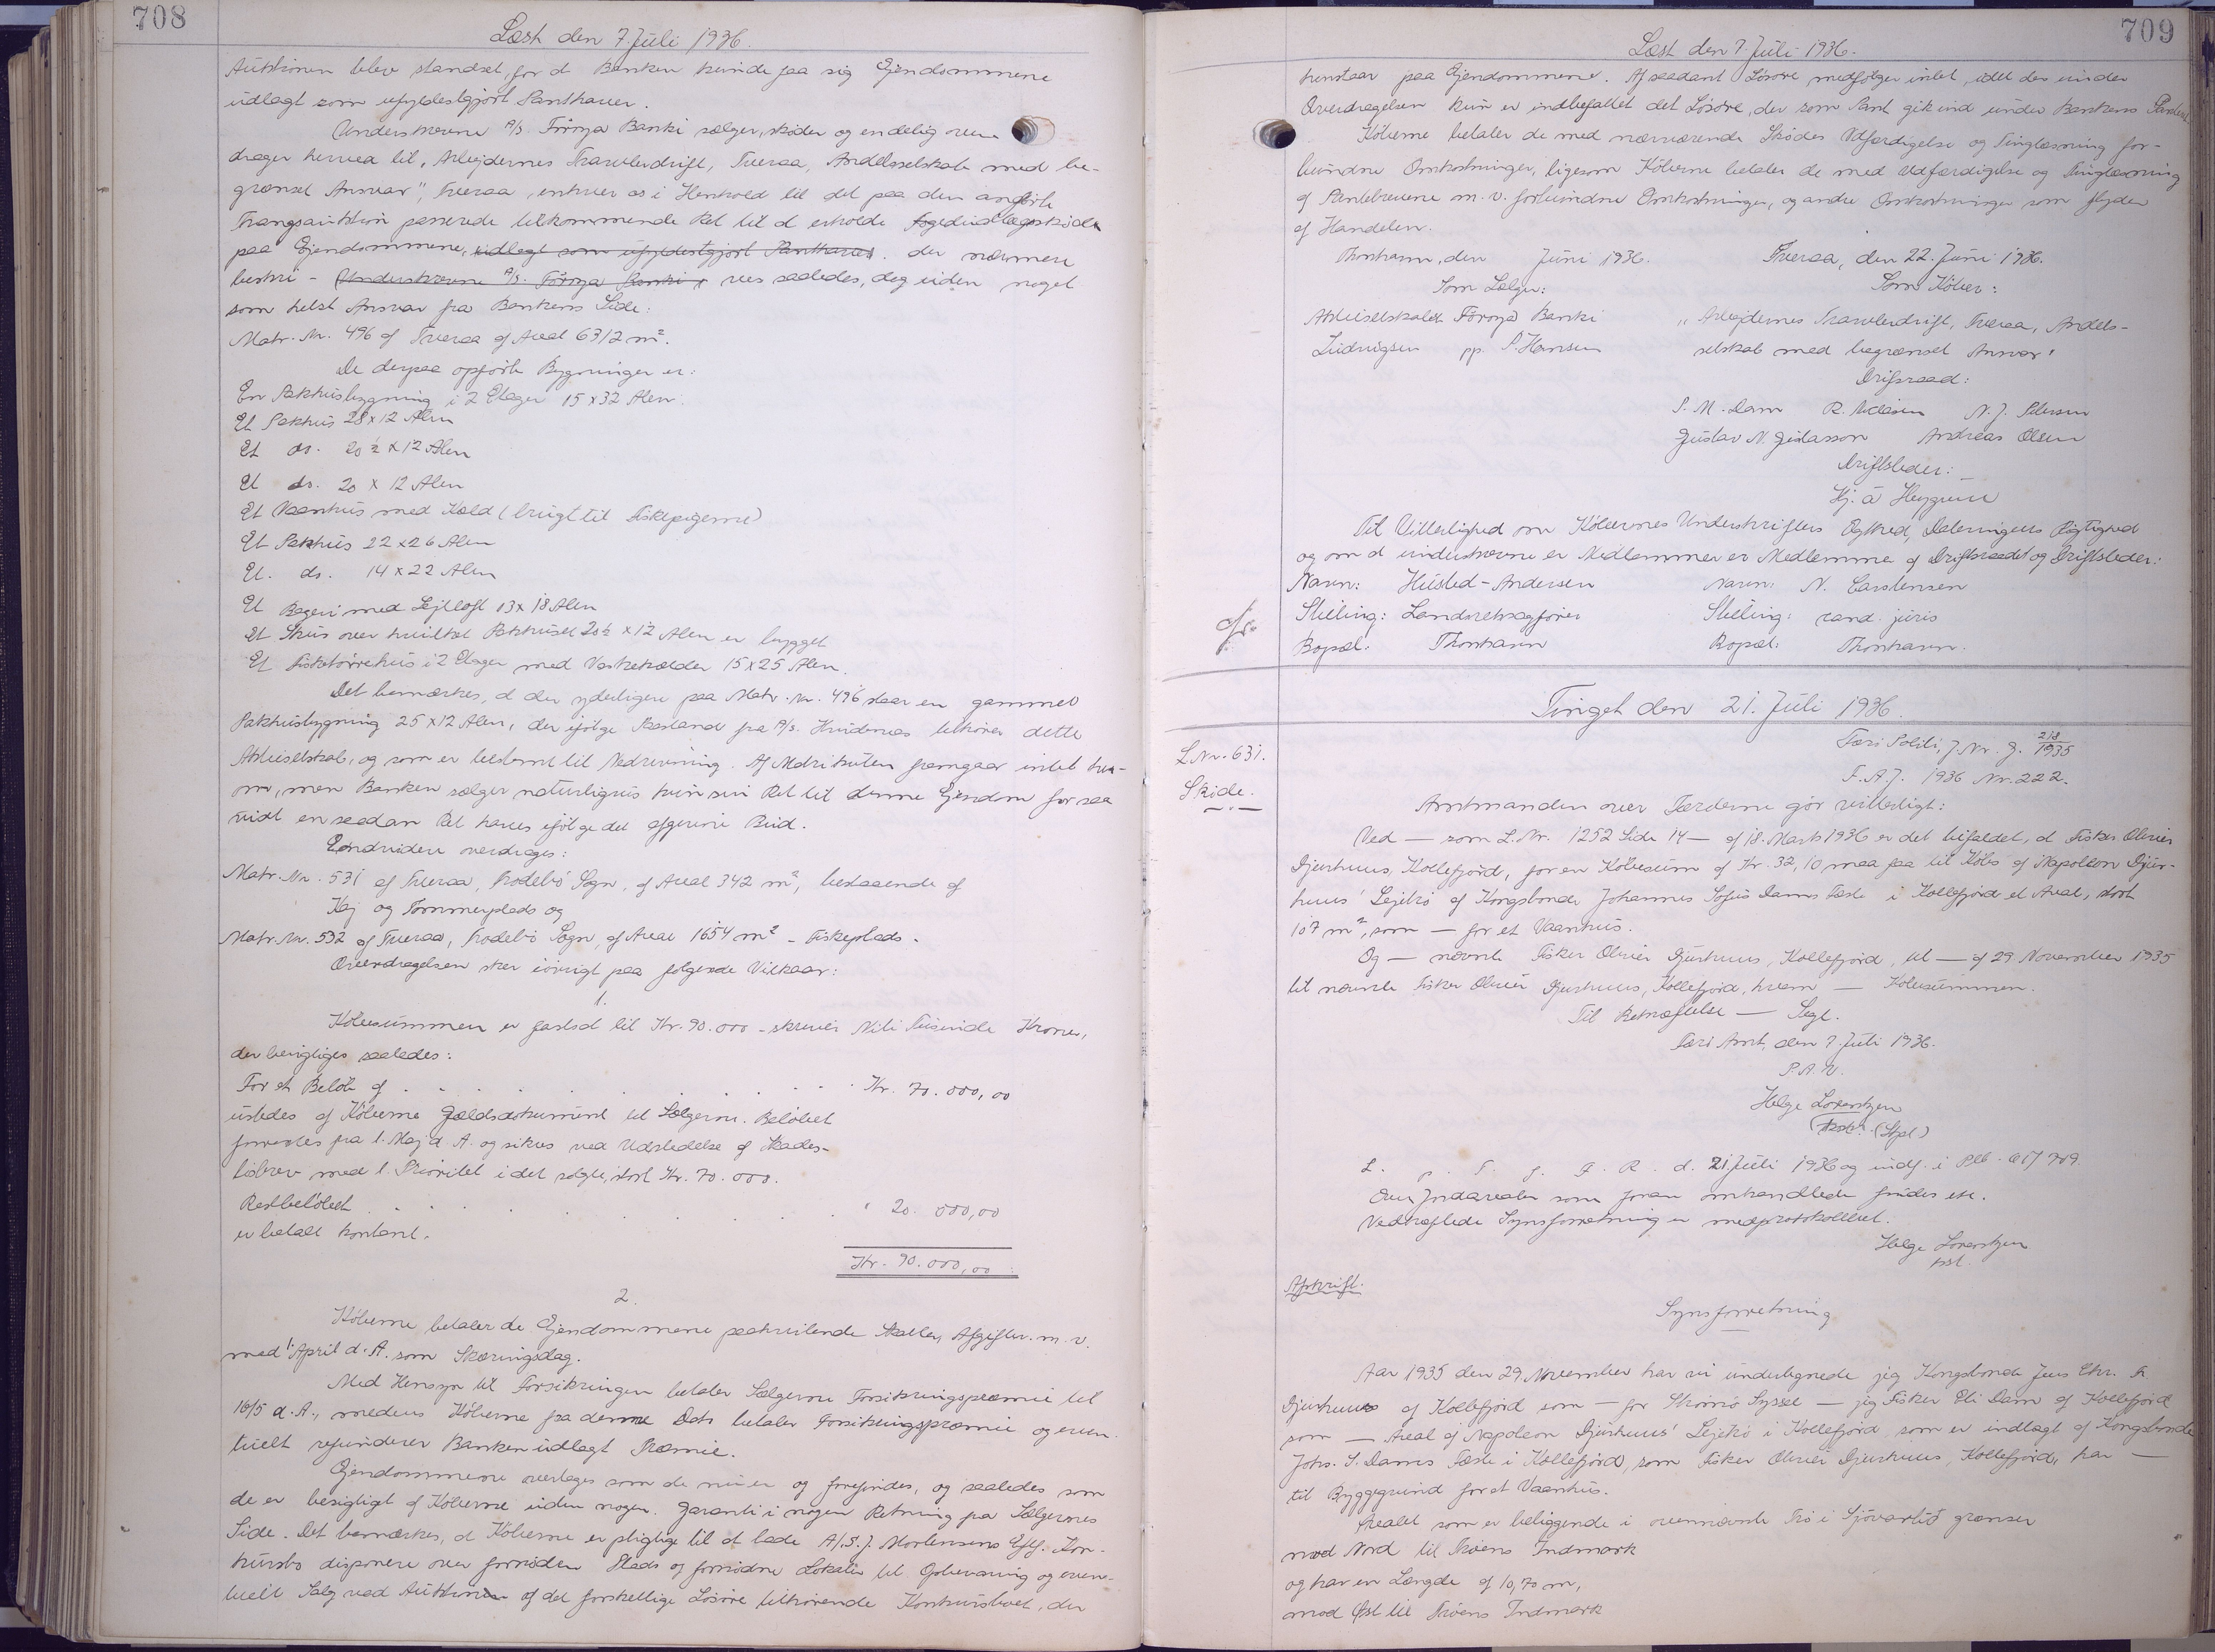 708
Læst den 7. Juli 1936.
Auktionen blev standset, for at Banken kunde faa sig Ejendommene
udlagt som ufyldestgjort Panthaver.
Underskrevne A/S. Föroya Banki sælger, skøder og endelig over
drager herved til "Arbejdernes Trawlerdrift, Tveraa, Andelsselskab med be-
grænset Ansvar", Tveraa, enhver os i Henhold til det paa den anførte
Tvangsauktion passerede tilkommende Ret til at erholde Fogedudlægsskøde
paa Ejendommene, udlagt som ufyldestgjort Panthaver. der nærmere
beskri- Underskrevne A/S. Föroya Banki ves saaledes, dog uden noget
som helst Ansvar fra Bankens Side:
Matr. Nr. 496 af Tveraa af Areal 6312 m².
De derpaa opførte Bygninger er:
En Pakhusbygning i 2 Etager 15 x 32 Alen.
Et Pakhus 28 x 12 Alen
Et do. 20 ½ x 12 Alen
Et do. 20 x 12 Alen
Et Vaanhus med Kæld (brugt til Fiskepigerne)
Et Pakhus 22 x 26 Alen
Et. do. 14 x 22 Alen
Et Bageri med Lejlogt 13 x 18 Alen
Et Skur over hvilket Pakhuset 20½ x 12 Alen er bygget
Et Fisketørrehus i 2 Etager med Vaskekælder 15 x 25 Alen.
Det bemærkes, at der yderligere paa Matr. Nr. 496 staar en gammel
Pakhusbygning 25 x 12 Alen, der ifølge Paastand fra A/S. Hvidenæs tilhører dette
Aktieselskab, og som er bestemt til Nedrivning. Af Matrikulen fremgaar intet her-
om, men Banken sælger naturligvis kun sin Ret til denne Ejendom for saa
vidt en saadan Ret haves ifølge det afgivne Bud.
Endvidere overdrages:
Matr. Nr. 531 af Tveraa, Frodebö Sogn, af Areal 342 m², bestaaende af
Kaj og Tømmerplads og
Matr. Nr. 532 af Tveraa, Frodebö Sogn, af Areal 1654 m² - Fiskeplads.
Overdragelsen sker iövrigt paa følgende Vilkaar:
1.
Købesummen er fastsat til Kr. 90.000 - skriver Niti Tusinde Kroner,
der berigtiges saaledes:
For et Beløb af . . . . . . . . . Kr. 70.000,00
udstedes af Køberne Gældsdokument til Sælgerne. Beløbet
forrentes fra 1. Maj d. A. og sikres ved Udstedelse af Skades-
løsbrev med 1. Prioritet i det solgte, stort Kr. 70.000.
Restbeløbet . . . . . . . . . " 20.000,00
er betalt kontant.
Kr. 90.000,00
2.
Køberne betaler de Ejendommene paahvilende Skatter, Afgifter m. v.
med 1. April d. A. som Skæringsdag.
Med Hensyn til Forsikringen betaler Sælgerne Forsikringspræmie til
16/5 d. A., medens Køberne fra denne Dato betaler Forsikringspræmie og even-
tuelt refunderer Banken udlagt Præmie.
Ejendommene overtages som de nu er og forefindes, og saaledes som
de er besigtiget af Køberne uden nogen Garanti i nogen Retning fra Sælgernes
Side. Det bemærkes, at Køberne er pligtige til at lade A/S. J. Mortensens Eftf. Kon-
kursbo disponere over fornøden Plads og fornødne Lokaler til Opbevaring og even-
tuelt Salg ved Auktionen af det forskellige Løsøre tilhørende Konkursboet, der
709
Læst den 7. Juli 1936.
henstaar paa Ejendommene. Af saadant Løsøre medfølger intet, idet der under
Overdragelsen kun er indbefattet det Løsøre, der som Pant gik ind under Bankens Panteret
Køberne betaler de med nærværende Skødes Udfærdigelse og Tinglæsning for-
bundne Omkostninger, ligesom Køberne betaler de med Udfærdigelse og Tinglæsning
af Pantebrevene m. v. forbundne Omkostninger, og andre Omkostninger som flyder
af Handelen.
Thorshavn, den Juni 1936. Tveraa, den 22. Juni 1936.
Som Sælger: Som Køber:
Aktieselskabet Föroya Banki "Arbejdernes Trawlerdrift, Tveraa, Andels-
Ludvigsen pp. P. Hansen selskab med begrænset Ansvar"
Driftsraad:
P. M. Dam R. Nielsen N. J. Petersen
Gustav N. Gislasson Andreas Olsen
Driftsleder:
Hj. á Heygum
Til Vitterlighed om Købernes Underskrifters Ægthed, Dateringens Rigtighed
og om at underskrevne er Medlemmer er Medlemme af Driftsraadet og Driftsleder:
Navn: Husted-Andersen Navn: N. Carstensen
Stilling: Landsretssagfører Stilling: cand. juris
Bopæl: Thorshavn Bopæl: Thorshavn.
Tinget den 21. Juli 1936.
L. Nr. 631.
Skøde.
Færø Politi, J. Nr. J. 218/1935
F. A. J. 1936 Nr. 222.
Amtmanden over Færøerne gør vitterligt:
Ved — som L. Nr. 1252 Side 14 — af 18. Marts 1936 er det bifaldet, at Fisker Oliver
Djurhuus, Kollefjord, for en Købesum af Kr. 32,10 maa faa til Købs af Napoleon Djur-
huus' Lejetrö af Kongsbonde Johannes Sofus Dams Fæste i Kollefjord et Areal, stort
107 m², som — for et Vaanhus.
Og — nævnte Fisker Oliver Djurhuus, Kollefjord, til — af 29 November 1935
til nævnte Fisker Oliver Djurhuus, Kollefjord, hvem — Købesummen.
Til Bekræftelse — Segl.
Færø Amt, den 7. Juli 1936.
P. A. V.
Helge Lorentzen
(Stpl)
L. p. T. f. F. R. d. 21 Juli 1936 og indf. i Ptk. 709
Over Jordarealer som foran omhandlede findes ikke.
Vedhæftede Synsforretning er medprotokolleret.
Helge Lorentzen
kst.
Afskrift.
Synsforretning
Aar 1935 den 29. November har vi undertegnede jeg Kongsbonde Jens Chr.
Djurhuus af Kollefjord som — for Strömö Syssel — jeg Fisker Eli Dam af Kollefjord
som — Areal af Napoleon Djurhuus' Lejetrö i Kollefjord som er indlagt af Kongsbonde
Johs. S. Dams Fæste i Kollefjord, som Fisker Oliver Djurhuus, Kollefjord, har —
til Byggegrund for et Vaanhus.
Arealet som er beliggende i ovennævnte Trö i Sjóvartið grænser
mod Nord til Tröens Indmark
og har en Længde af 10,70 m,
mod Øst til Tröens Indmark